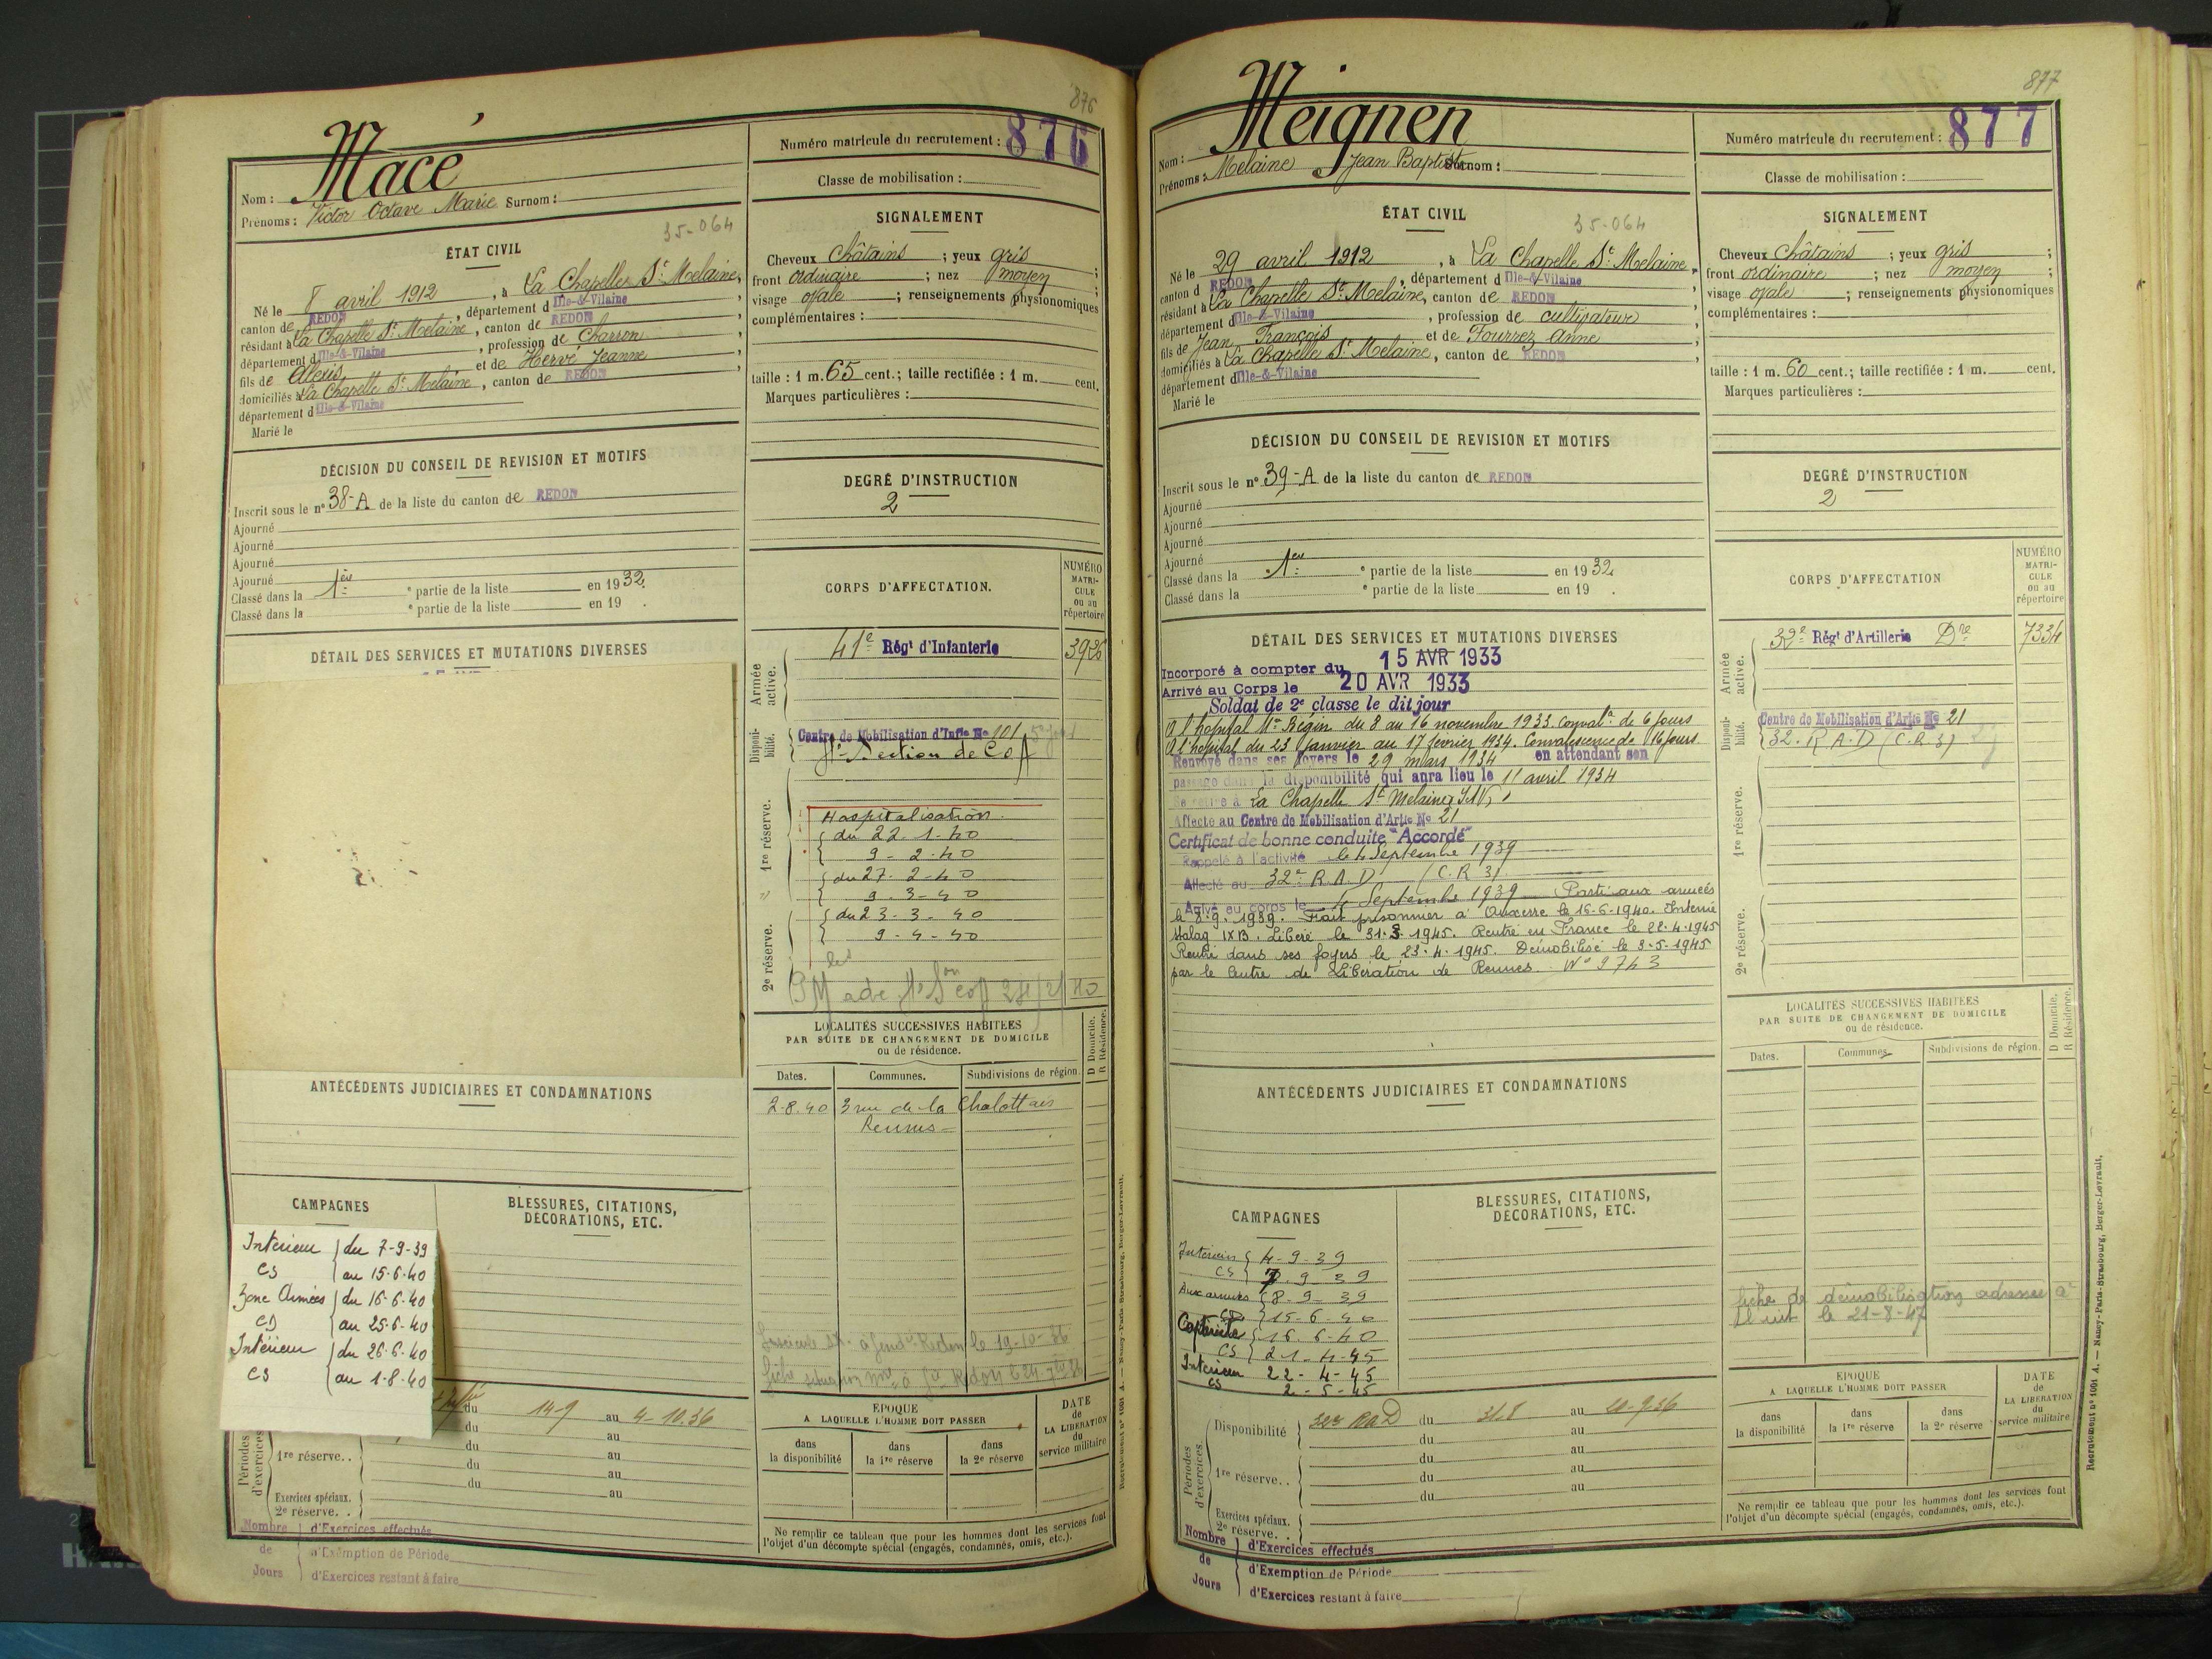 876
Macé
Nom :
Prénoms : Victor Octave Marie Surnom :
Numéro matricule du recrutement : 876
Classe de mobilisation :
35-064
ÉTAT CIVIL
Né le 8 avril 1912, à La Chapelle St Melaine,
canton de REDON, département d Ille-&-Vilaine,
résidant à La Chapelle St Melaine, canton de REDON,
département d Ille-&-Vilaine, profession de Charron
fils de Alexis et de Hervé Jeanne,
domiciliés à La Chapelle St Melaine, canton de REDON,
département d Ille-&-Vilaine
Marié le
SIGNALEMENT
Cheveux châtains ; yeux gris ;
front ordinaire ; nez moyen ;
visage ovale ; renseignements physionomiques
complémentaires :
taille : 1 m. 65 cent.; taille rectifiée : 1 m. cent.
Marques particulières :
DÉCISION DU CONSEIL DE REVISION ET MOTIFS
Inscrit sous le n° 38-A de la liste du canton de REDON
Ajourné
Ajourné
Ajourné
Ajourné
Classé dans la 1ère e partie de la liste en 1932.
Classé dans la e partie de la liste en 19 .
DEGRÉ D'INSTRUCTION
2
CORPS D'AFFECTATION.
NUMÉRO MATRICULE ou au répertoire
Armée active.
41e Régt d'Infanterie 3926
Disponibilité.
Centre de Mobilisation d'Infie No 101
Section de COA
1re réserve.
Hospitalisation.
du 22-1-40
9-2-40
du 27-2-40
9-3-40
du 23-3-40
9-4-40
2e réserve.
DÉTAIL DES SERVICES ET MUTATIONS DIVERSES
ANTÉCÉDENTS JUDICIAIRES ET CONDAMNATIONS
LOCALITÉS SUCCESSIVES HABITÉES
PAR SUITE DE CHANGEMENT DE DOMICILE
ou de résidence.
D Domicile.
R Résidence.
Dates. Communes. Subdivisions de région.
2-8-40 3 rue de la Chalottais
Rennes
CAMPAGNES
Intérieur du 7-9-39
CS au 15-6-40
Zone Armées du 16-6-40
CD au 25-6-40
Intérieur du 26-6-40
CS au 1-8-40
BLESSURES, CITATIONS,
DÉCORATIONS, ETC.
à Redon le 19-10-36
du 14-9 au 4-10.36
du au
du au
du au
du au
du au
Périodes d'exercices
1re réserve..
Exercices spéciaux.
2e réserve. .
ÉPOQUE
A LAQUELLE L'HOMME DOIT PASSER
dans la disponibilité
dans la 1re réserve
dans la 2e réserve
DATE de LA LIBÉRATION du service militaire
Ne remplir ce tableau que pour les hommes dont les services font
l'objet d'un décompte spécial (engagés, condamnés, omis, etc.).
Nombre de Jours
d'Exercices effectués
d'Exemption de Période
d'Exercices restant à faire
Recrutement n° 1001 A. — Nancy-Paris-Strasbourg, Berger-Levrault.
877
Meignen
Nom :
Prénoms : Melaine Jean Baptiste Surnom :
Numéro matricule du recrutement : 877
Classe de mobilisation :
ÉTAT CIVIL
35-064
Né le 29 avril 1912, à La Chapelle St Melaine,
canton d REDON, département d Ille-&-Vilaine
résidant à La Chapelle St Melaine, canton de REDON,
département d Ille-&-Vilaine, profession de cultivateur,
fils de Jean François et de Fourrez Anne,
domiciliés à La Chapelle St Melaine, canton de REDON
département d Ille-&-Vilaine
Marié le
SIGNALEMENT
Cheveux châtains ; yeux gris ;
front ordinaire ; nez moyen ;
visage ovale ; renseignements physionomiques
complémentaires :
taille : 1 m. 60 cent.; taille rectifiée : 1 m. cent.
Marques particulières :
DÉCISION DU CONSEIL DE REVISION ET MOTIFS
Inscrit sous le n° 39-A de la liste du canton de REDON
Ajourné
Ajourné
Ajourné
Ajourné
Classé dans la 1ère e partie de la liste en 1932
Classé dans la e partie de la liste en 19 .
DEGRÉ D'INSTRUCTION
2
CORPS D'AFFECTATION
NUMÉRO MATRICULE ou au répertoire
Armée active.
32e Régt d'Artillerie Dre 7334
Disponibilité.
Centre de Mobilisation d'Artie No 21
32. R A D (C.R 3)
1re réserve.
2e réserve.
DÉTAIL DES SERVICES ET MUTATIONS DIVERSES
Incorporé à compter du 15 AVR 1933
Arrivé au Corps le 20 AVR 1933
Soldat de 2e classe le dit jour
A l'hopital Mre Bégin du 8 au 16 novembre 1933. Convalce de 6 jours
A l'hopital du 23 janvier au 17 février 1934. Convalescence de 16 jours
Renvoyé dans ses foyers le 29 mars 1934 en attendant son
passage dans la disponibilité qui aura lieu le 11 avril 1934
Se retire à La Chapelle St Melaine, I&V,
Affecté au Centre de Mobilisation d'Artie No 21
Certificat de bonne conduite "Accordé"
Rappelé à l'activité le 4 Septembre 1939
Affecté au 32e R.A.D (C.R 3)
Arrivé au corps le 4 Septembre 1939 Parti aux armées
le 8.9.1939. Fait prisonnier à Auxerre le 16-6-1940. Interné
stalag IXB. Libéré le 31.3.1945. Rentré en France le 22.4.1945
Rentré dans ses foyers le 23.4.1945. Démobilisé le 3-5-1945
par le Centre de Libération de Rennes. No 9743
ANTÉCÉDENTS JUDICIAIRES ET CONDAMNATIONS
LOCALITÉS SUCCESSIVES HABITÉES
PAR SUITE DE CHANGEMENT DE DOMICILE
ou de résidence.
D Domicile.
R Résidence.
Dates. Communes. Subdivisions de région.
CAMPAGNES
Intérieur 4-9-39
CS 7-9-39
Aux armées 8-9-39
CD 15-6-40
Captivité 16-6-40
CS 21-4-45
Intérieur 22-4-45
CS 2-5-45
BLESSURES, CITATIONS,
DÉCORATIONS, ETC.
fiche de démobilisation adressée à
le 21-8-47
Périodes d'exercices.
Disponibilité 32e RAD du 31.8 au 20-9 36
du au
du au
1re réserve.. du au
du au
Exercices spéciaux.
2e réserve. .
ÉPOQUE
A LAQUELLE L'HOMME DOIT PASSER
dans la disponibilité
dans la 1re réserve
dans la 2e réserve
DATE de LA LIBÉRATION du service militaire
Ne remplir ce tableau que pour les hommes dont les services font
l'objet d'un décompte spécial (engagés, condamnés, omis, etc.).
Nombre de Jours
d'Exercices effectués
d'Exemption de Période
d'Exercices restant à faire
Recrutement n° 1001 A. — Nancy-Paris-Strasbourg, Berger-Levrault.